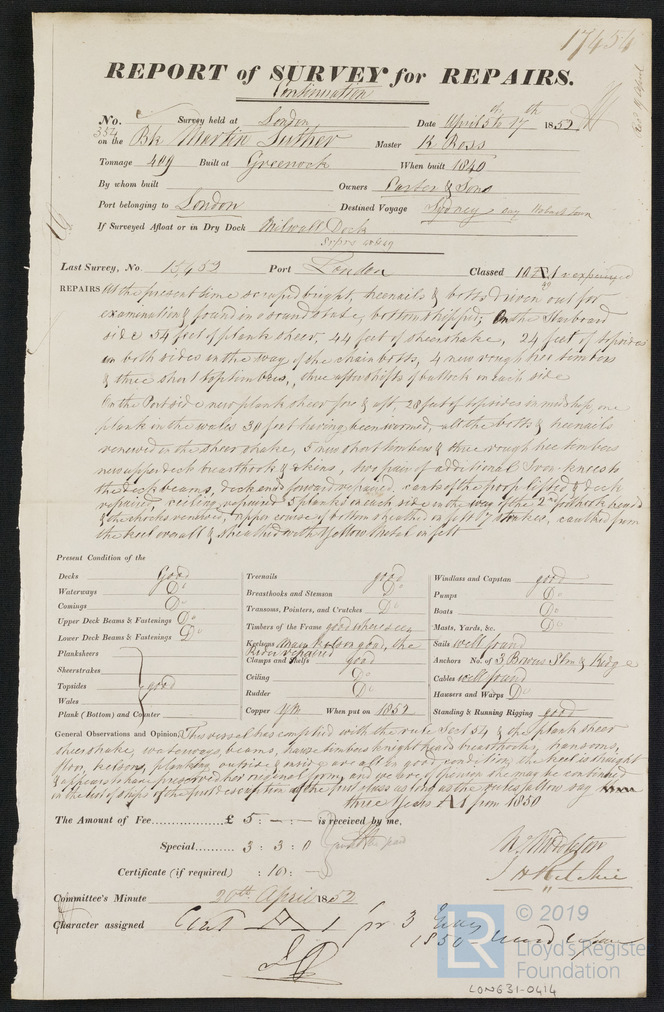 17454
REPORT of SURVEY for REPAIRS.
Continuation
No. 352 Survey held at London Date April 5th to 17th 1852
on the Bk Martin Luther Master R Ross
Tonnage 409 Built at Greenock When built 1840
By whom built Owners Carter & Sons
Port belonging to London Destined Voyage Sydney
If Surveyed Afloat or in Dry Dock Milwall Dock
Last Survey, No. 15452 Port London Classed 10 A1 expired
REPAIRS At the present time scraped bright, treenails & bolts driven out for
examination & found in a sound state, bottom stripped; On the Starboard
side 54 feet of plank sheer, 44 feet of sheerstrake, 24 feet of topsides
on both sides in the way of the chain bolts, 4 new rough tree timbers
& three short top timbers, three after shifts of bullock on each side
On the Port side new plank sheer fore & aft, 28 feet of topsides in midship, one
plank in the wales 30 feet having been wormed, all the bolts & treenails
renewed in the sheerstrake, 5 new short timbers & three rough tree timbers
new upper deck breasthook & ekens, two pair of additional Iron knees to
the deck beams, deck ends forward repaired, cants of the poop lifted & deck
repaired, ceiling repaired 5 planks on each side in the way of the 2nd futtock heads
& the chocks renewed, upper course of bottom sheathed on felt caulked from
the keel overall & sheathed with Yellow Metal on felt
Present Condition of the
Decks Good
Waterways Do
Comings Do
Upper Deck Beams & Fastenings Do
Lower Deck Beams & Fastenings Do
Planksheers
Sheerstrakes
Topsides good
Wales
Plank (Bottom) and Counter
Treenails good
Breasthooks and Stemson Do
Transoms, Pointers, and Crutches Do
Timbers of the Frame good where seen
Keelsons Main keelson good, the
Rider repaired
Clamps and Shelfs good
Ceiling Do
Rudder Do
Copper YM When put on 1852
Windlass and Capstan good
Pumps Do
Boats Do
Masts, Yards, &c. Do
Sails well found
Anchors No. of 3 Bowers Stm & Kedge
Cables well found
Hawsers and Warps Do
Standing & Running Rigging good
General Observations and Opinion, This vessel has complied with the rule Sect 54 & the plank sheer
sheerstrake, waterways, beams, hawse timbers knight heads breasthooks, transoms,
floor, kelsons, planking outside & inside are all in good condition, the keel is straight
& appears to have preserved her original form, and we are of opinion she may be continued
in the list of ships of the first description of the first class as long as the rules allow say
three Years A1 from 1850
The Amount of Fee...... £ 5 : — : — is received by me,
Special......... 3 : 3 : 0
Certificate (if required) : 10 : —
J H Ritchie
Committee's Minute 20th April 1852
Character assigned Cont A 1 for 3 Years
1850
© 2019
LR
Lloyd's Register
Foundation
LON631-0414